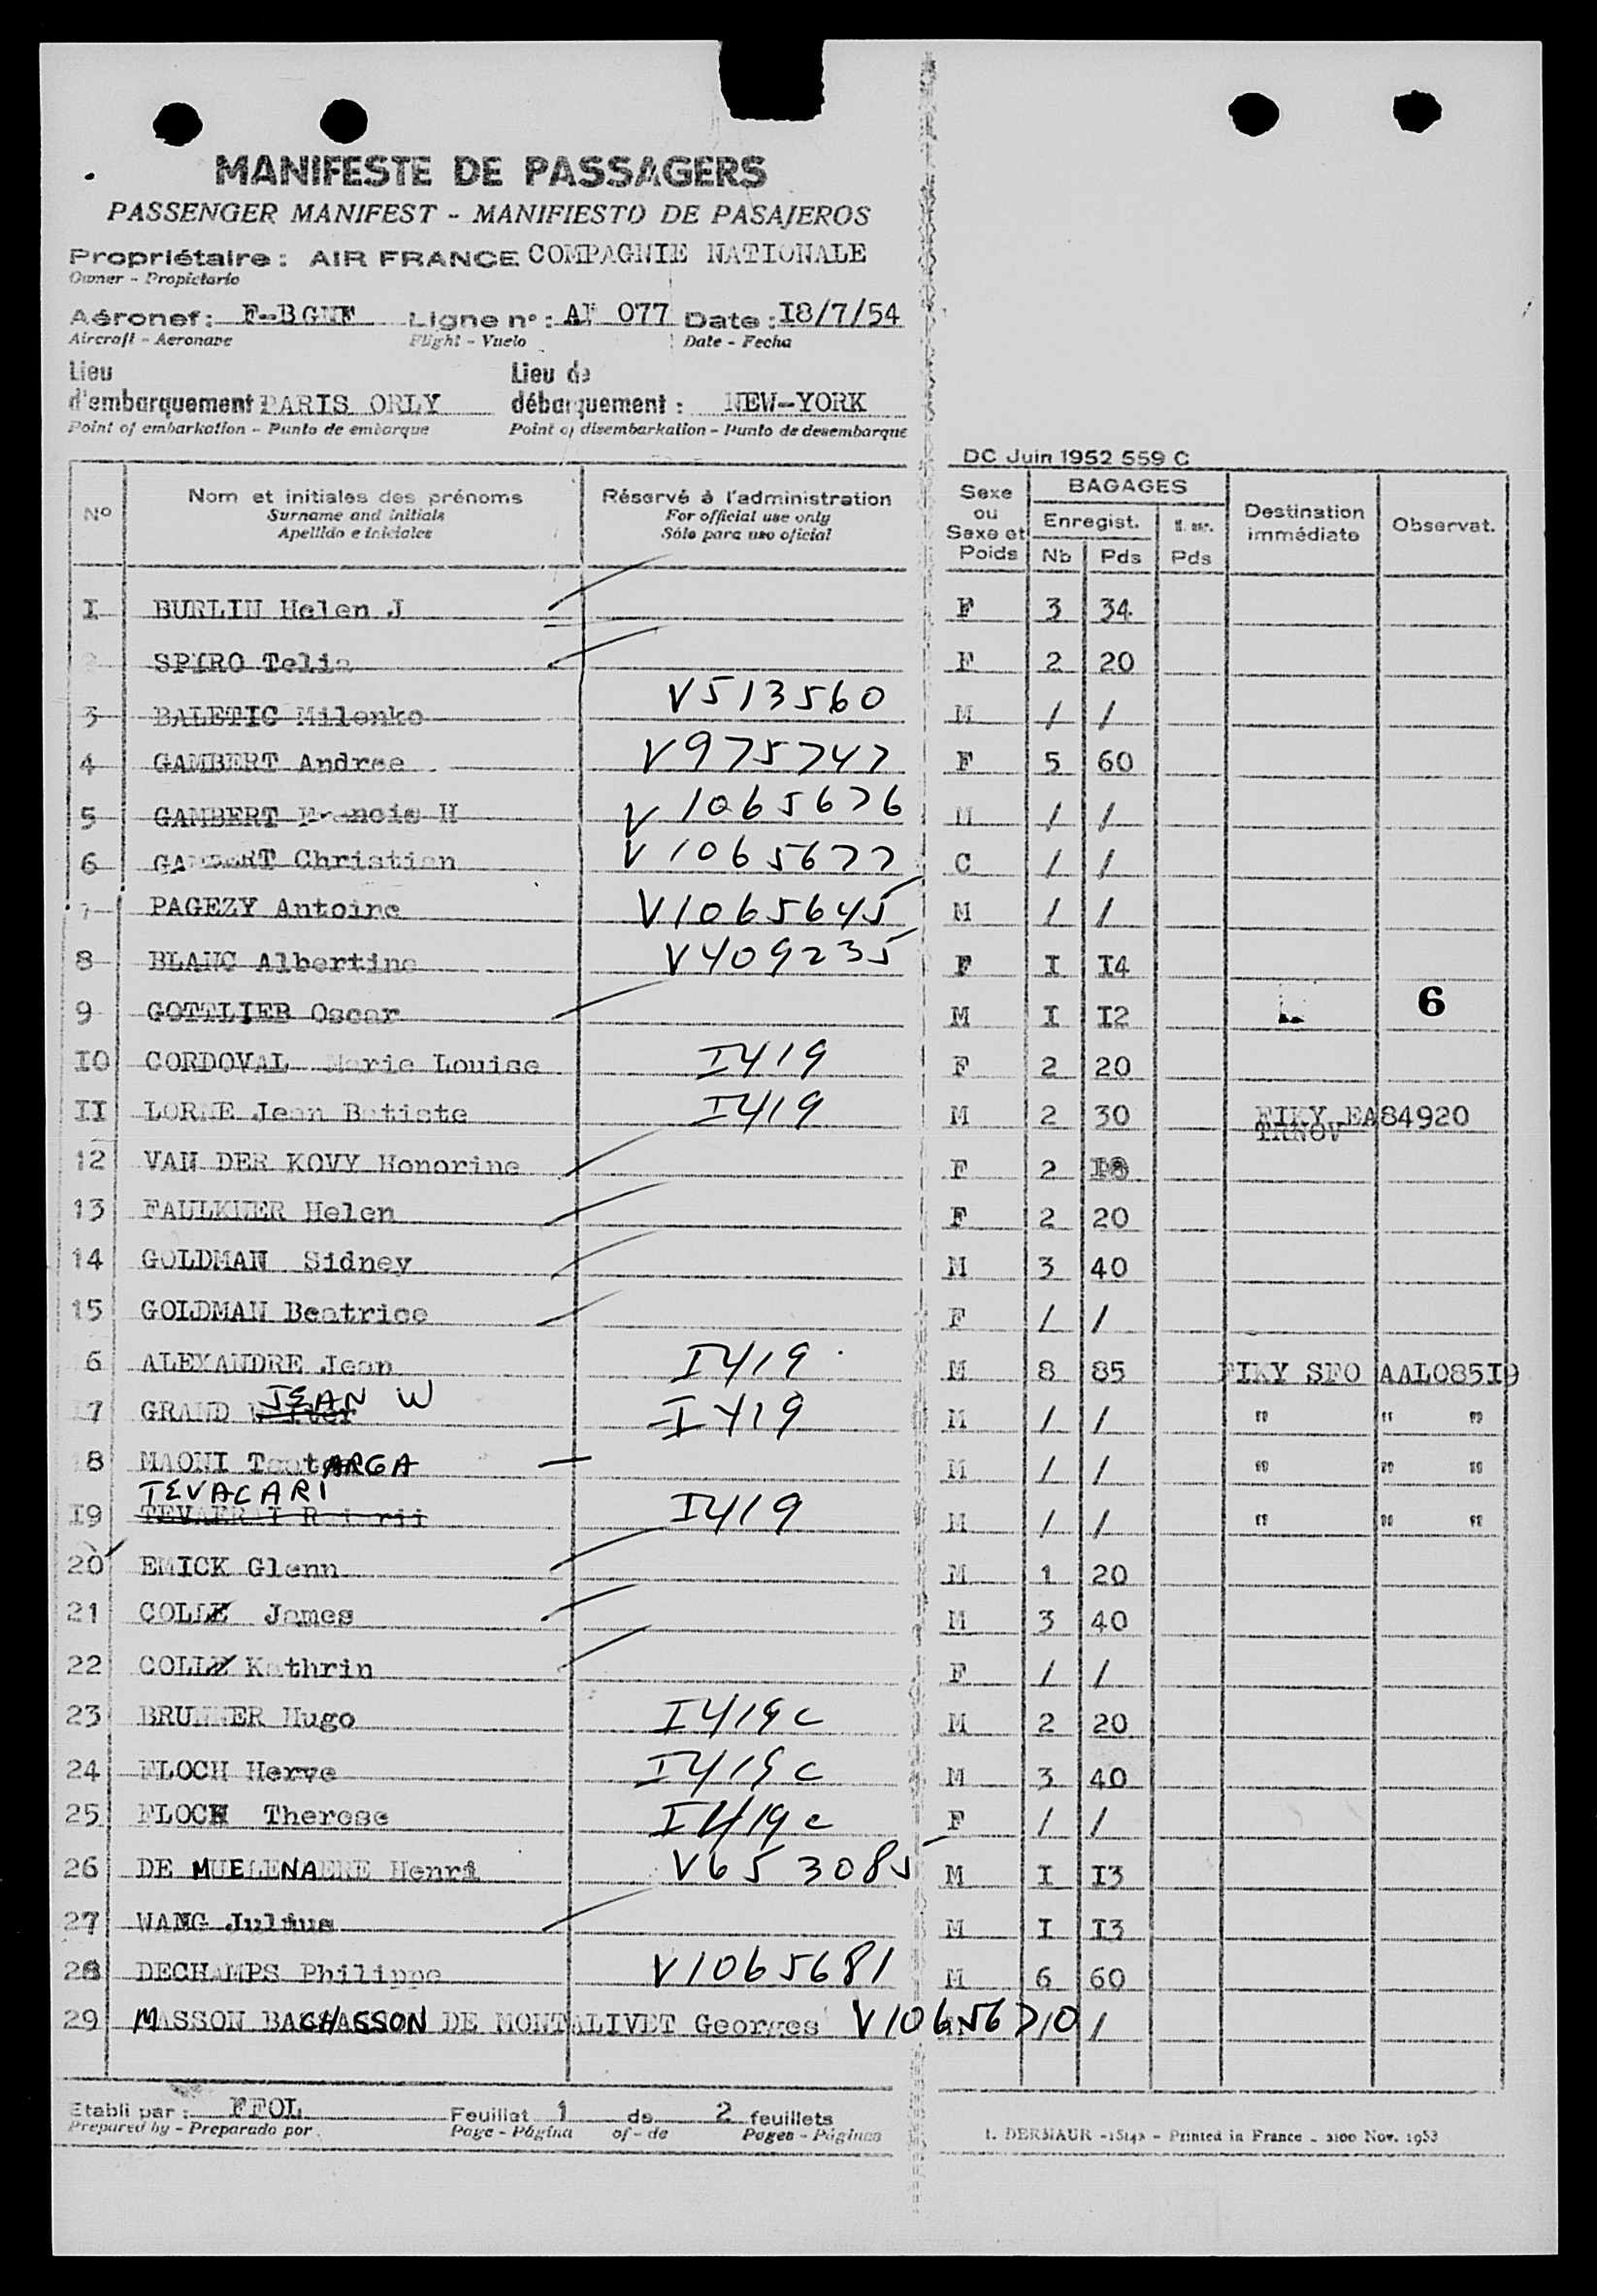 MANIFESTE DE PASSAGERS
PASSENGER MANIFEST - MANIFIESTO DE PASAJEROS
Propriétaire : AIR FRANCE COMPAGNIE NATIONALE
Owner - Propictario
Aéronef : F-BGNF Ligne n° : AF 077 Date : I8/7/54
Aircraft - Aeronave Flight - Vuelo Date - Fecha
Lieu d'embarquement : PARIS ORLY Lieu de débarquement : NEW-YORK
Point of embarkation - Punto de embarque Point of disembarkation - Punto de desembarque
DC Juin 1952 559 C
N° Nom et initiales des prénoms Réservé à l'administration Sexe ou Sexe et Poids BAGAGES Destination immédiate Observat.
Surname and initials For official use only Enregist.
Apellido e iniciales Sólo para uso oficial Nb Pds Pds
I BURLIN Helen J F 3 34
SPIRO Telia F 2 20
3 BALETIC Milenko V513560 M / /
4 GAMBERT Andree V975747 F 5 60
5 GAMBERT Francis H V1065676 M / /
6 GAMBERT Christian V1065677 C / /
7 PAGEZY Antoine V1065645 M / /
8 BLANC Albertine V409235 F I I4
9 GOTTLIEB Oscar M I I2 6
I0 CORDOVAL Marie Louise I419 F 2 20
II LORNE Jean Batiste I419 M 2 30 FIKY EA84920
TRNOV
12 VAN DER KOVY Honorine F 2 I8
13 FAULKNER Helen F 2 20
14 GOLDMAN Sidney M 3 40
15 GOLDMAN Beatrice F / /
6 ALEXANDRE Jean I419 M 8 85 FIKY SFO AAL085I9
7 GRAND JEAN W I419 M / / " " "
8 MAONI TootARGA M / / " " "
TEVACARI
I9 I419 M / / " " "
20 EMICK Glenn M 1 20
21 COLLE James M 3 40
22 COLLE Kathrin F / /
23 BRUNNER Hugo I419C M 2 20
24 FLOCH Herve I419C M 3 40
25 FLOCH Therese I419C F / /
26 DE MUELENAERE Henri V653085 M I I3
27 WANG Julius M I I3
28 DECHAMPS Philippe V1065681 M 6 60
29 MASSON BACHASSON DE MONTALIVET Georges V10656710 /
Etabli par : FFOL Feuillet 1 de 2 feuillets
Prepared by - Preparado por Page - Página of - de Pages - Páginas
Printed in France - 2100 Nov. 1953